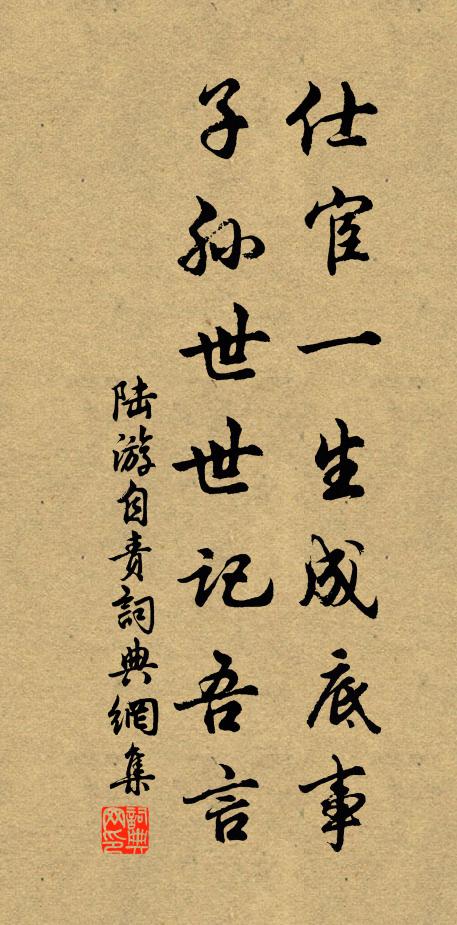 仕宦一生成底事
子孙世世记吾言
陆游自责詞典網集
詞典網印